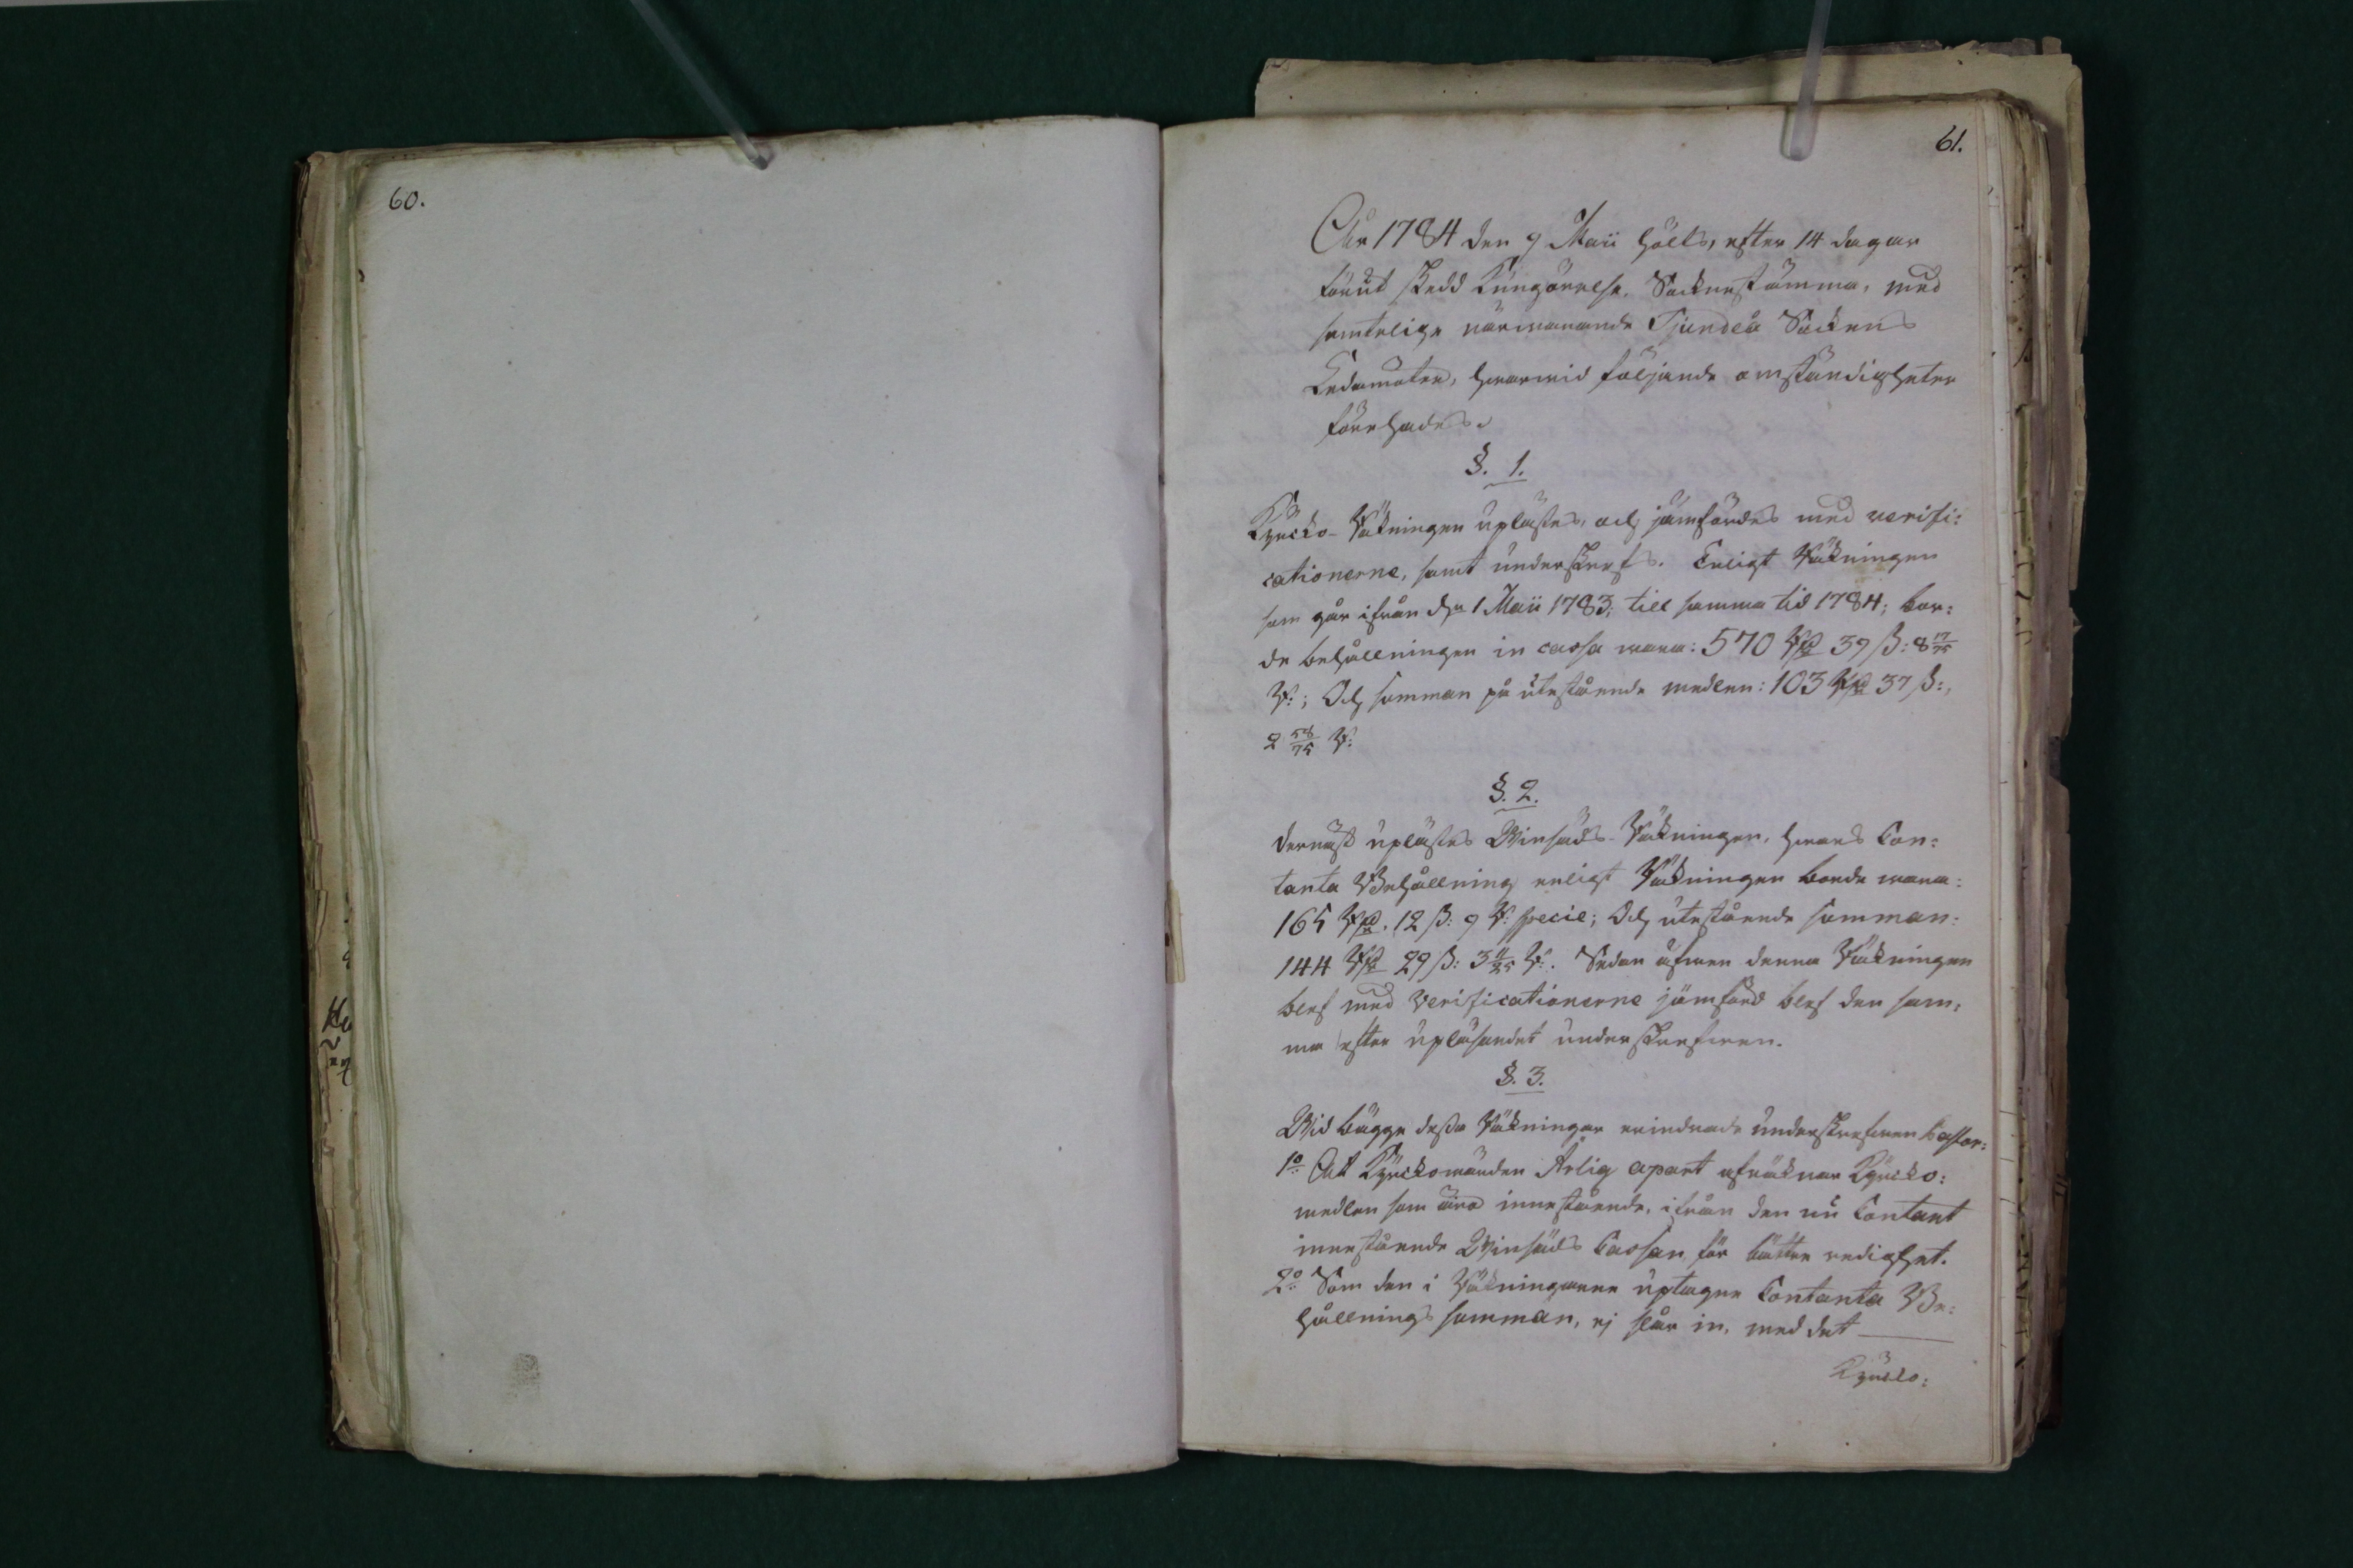 60.
61.
År 1784 den 9 Maii hölts, efter 14 dagar
förut skedd Kungörelse, Sockenstämma, med
samtelige närwarande Tjundeå Sockens
Ledamöter, hwarwid följande omständigheter
förehades.
§. 1.
Kyrcko-Räkningen uplästes, och jämfördes med verifi:
cationerne, samt underskrefs. Enligt Räkningen
som går ifrån d. 1 Maii 1783; till samma tid 1784; bor:
de behållningen in cassa wara: 570 Rd 39 ß: 8 17/75
R:; Och summan på utestående medlen: 103 Rd 37 ß:,
2 58/75 R:
§. 2.
dernäst uplästes Winsäds-Räkningen, hwars Con:
tanta Behållning enligt Räkningen borde wara:
165 Rd. 12 ß: 9 R: specie; Och utestående summan:
144 Rd 29 ß: 3 11/25 R:. Sedan äfwen denna Räkningen
blef med Verificationerne jämförd blef den sam:
ma efter upläsandet underskrefwen.
§. 3.
Wid bägge dessa Räkningar erindrade underskrefwen Pastor:
1o Att Kyrckowärden Årlig apart afräknar Kyrcko:
medlen som äro innestående, ifrån den nu Contant
innestående Winsäds Cassan för bättre redighet.
2o Som den i Räkningarne uptagne Contanta Be:
hållnings summan, ej slår in, med det
Kyrcko: